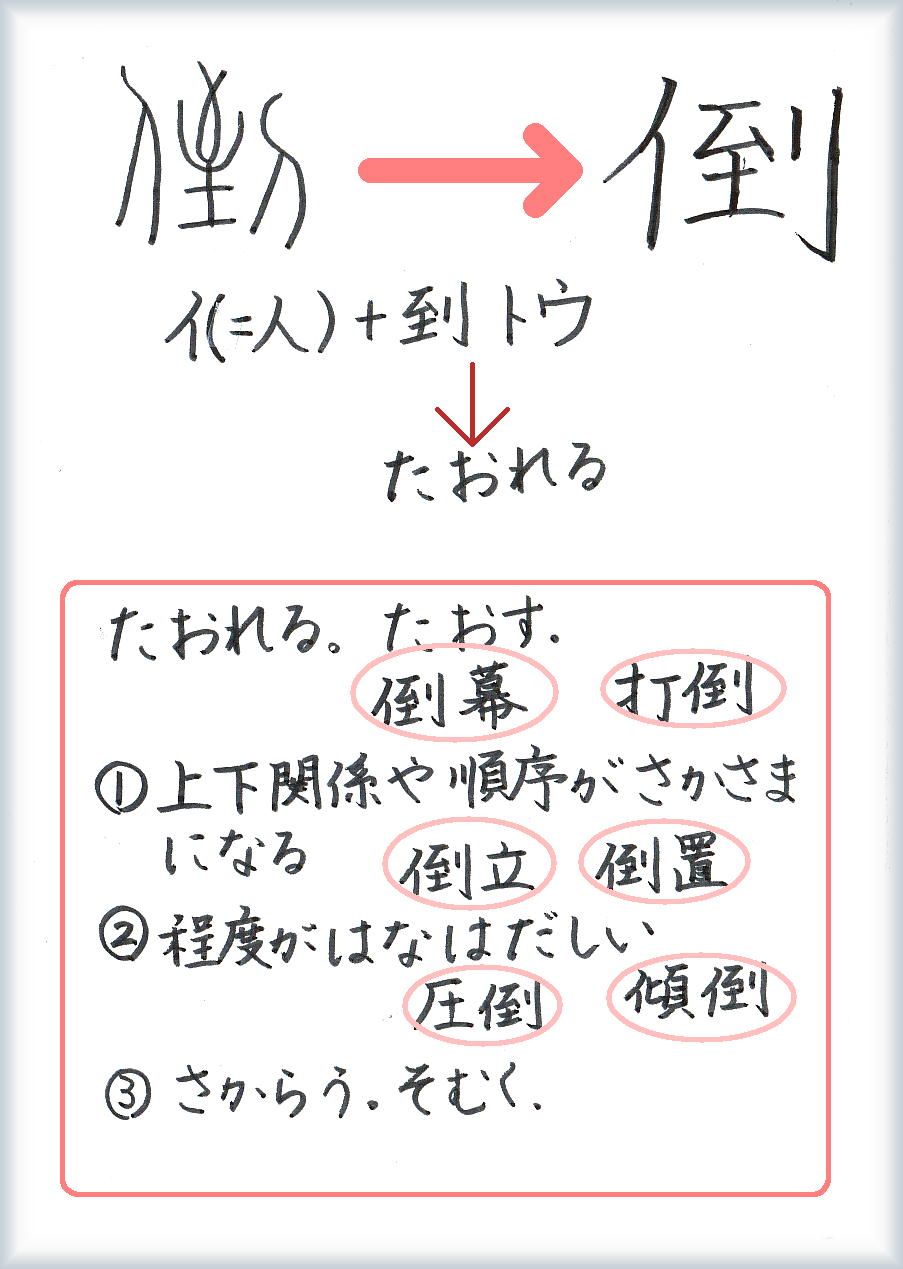 倒
イ(=人)+到 トウ
たおれる
たおれる。たおす.
倒幕 打倒
①上下関係や順序がさかさま
になる 倒立 倒置
②程度がはなはだしい
圧倒 傾倒
③さからう.そむく.